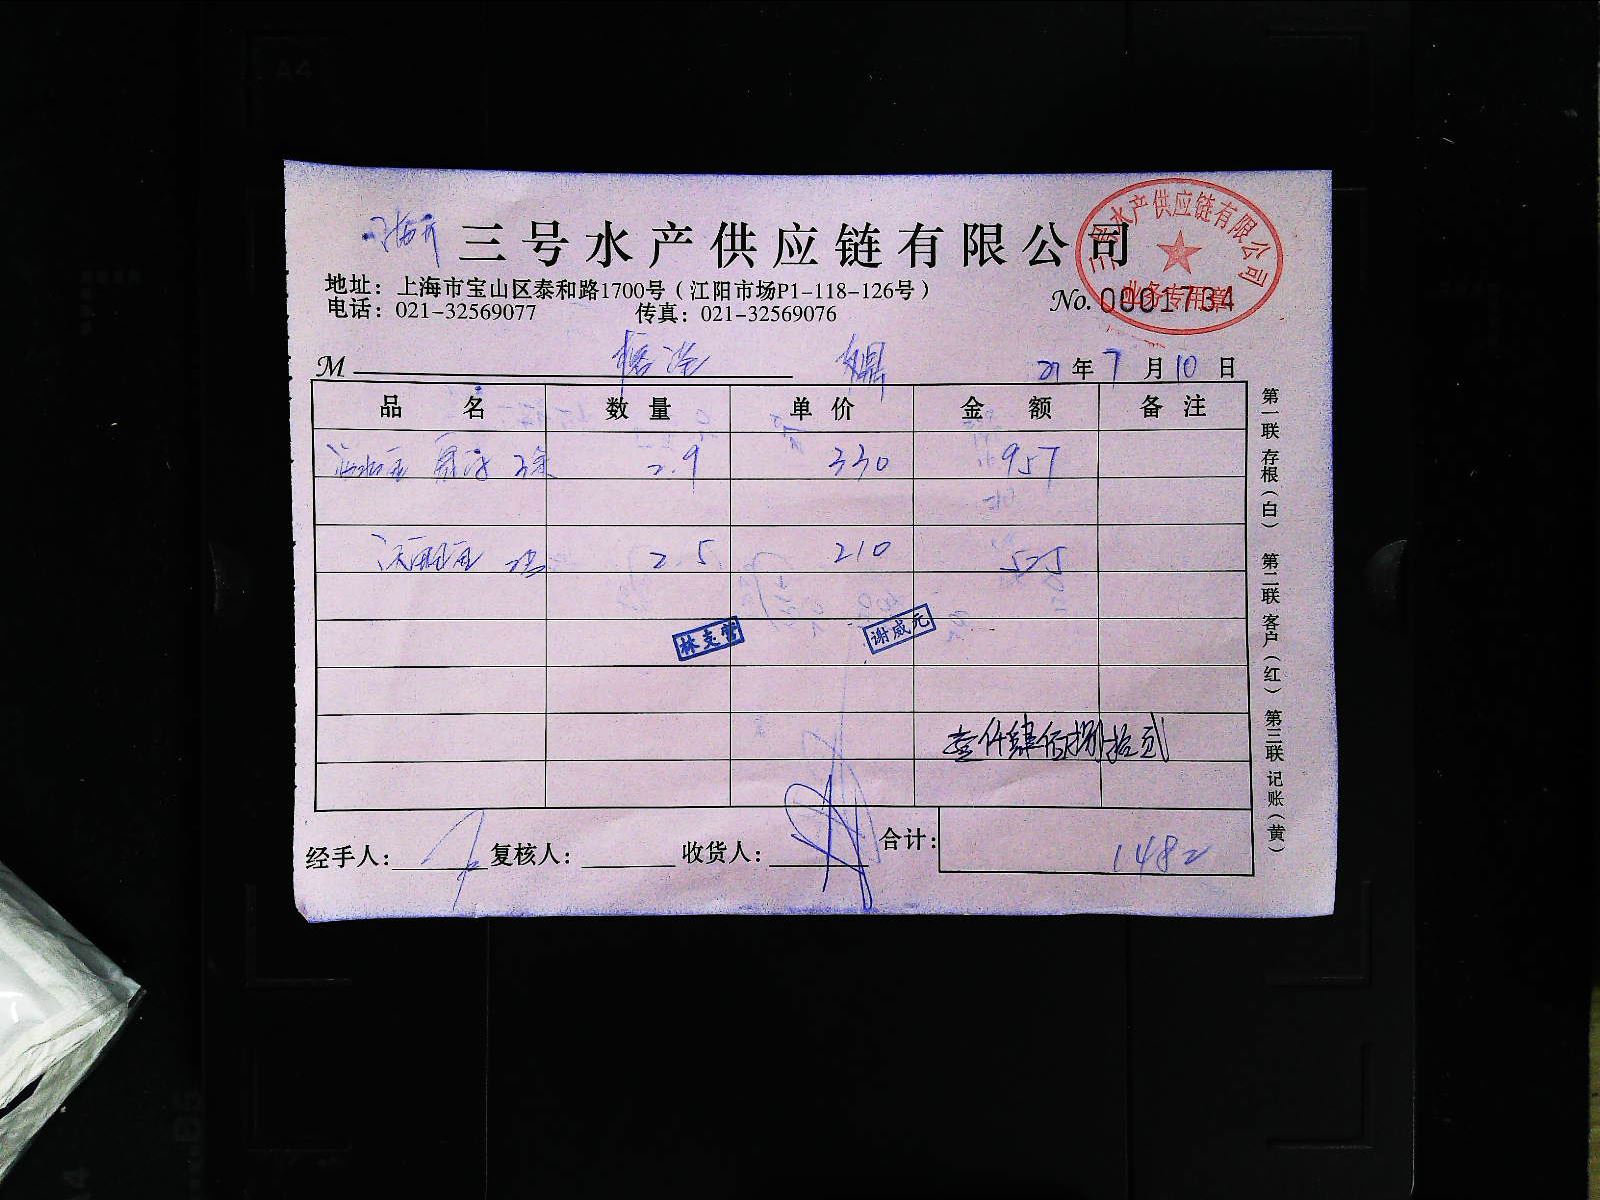 三号水产供应链有限公司
三号水产供应链有限公司
业务专用章
地址：上海市宝山区泰和路1700号（江阳市场P1-118-126号）
电话：021-32569077 传真：021-32569076
No. 0001734
M
21 年 7 月 10 日
品 名 数 量 单 价 金 额 备 注
2.9 330 957
2.5 210 525
林支营 谢威元
壹仟肆佰捌拾贰
经手人： 复核人： 收货人： 合计： 1482
第一联 存根（白） 第二联 客户（红） 第三联 记账（黄）